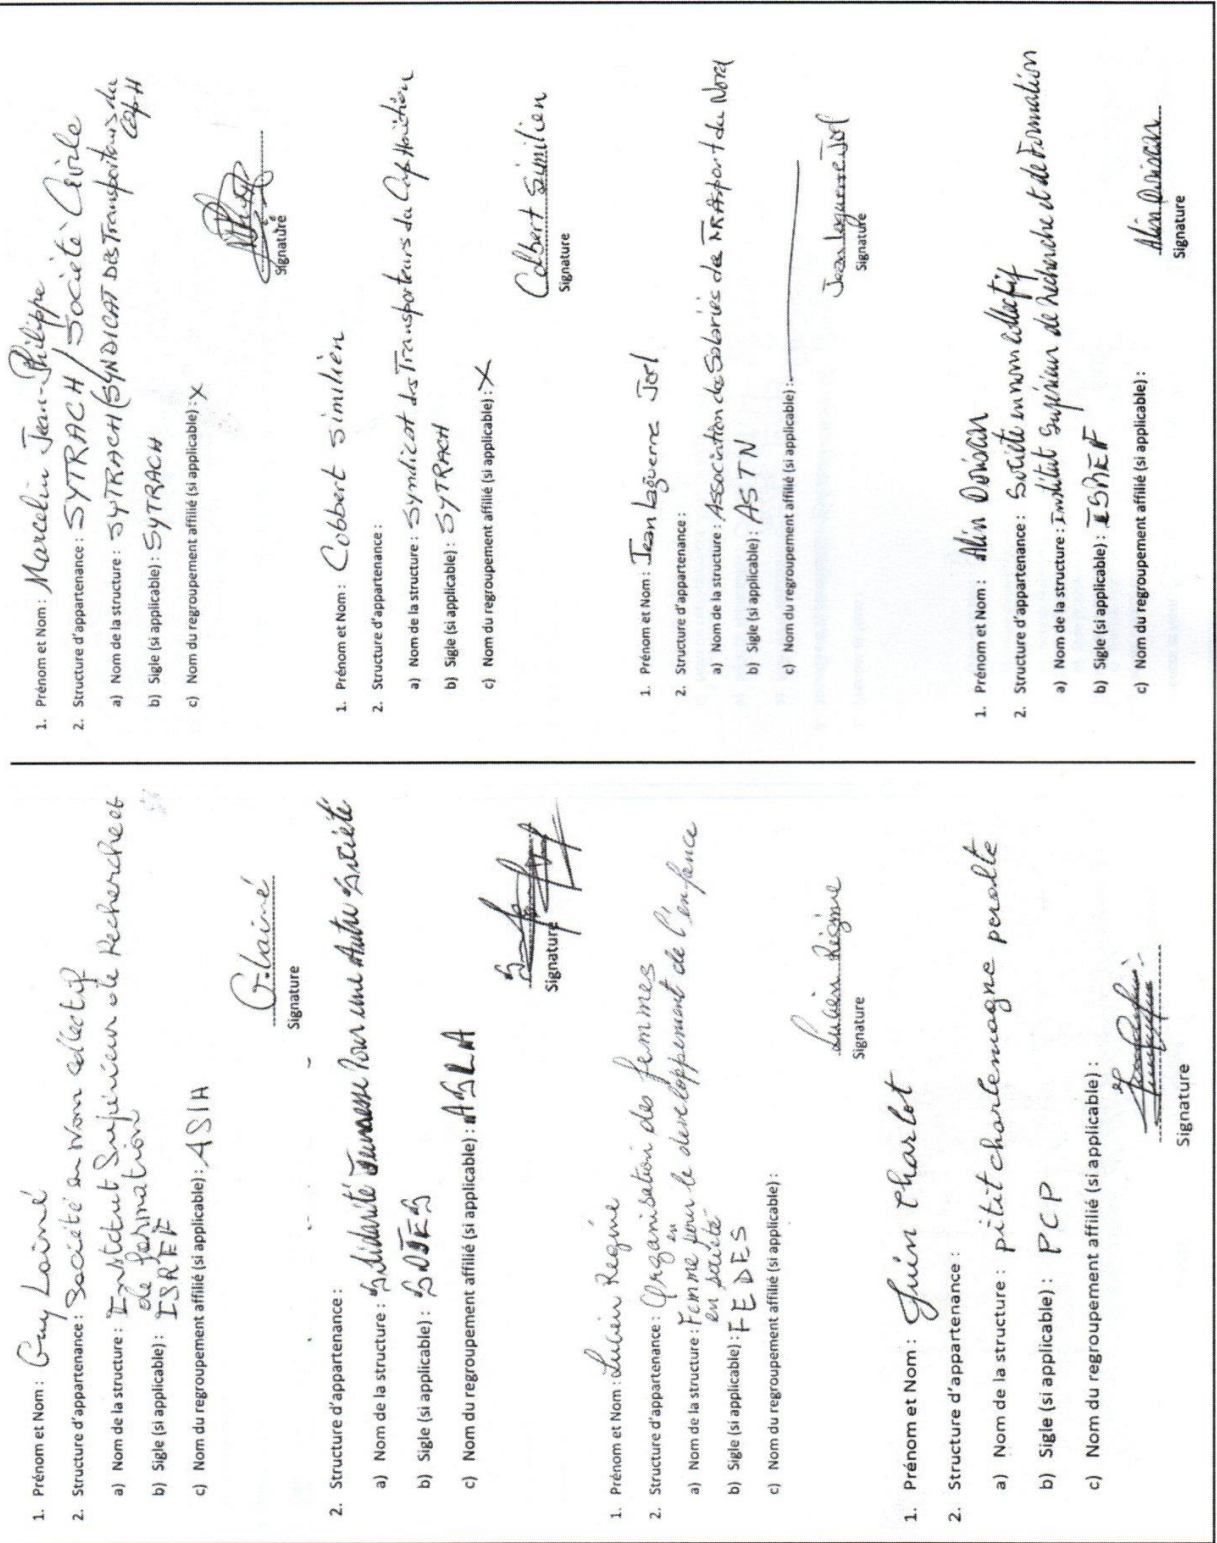 1. Prénom et Nom : Guy Lainé
2. Structure d'appartenance : Société en Nom collectif
a) Nom de la structure : Institut Supérieur de Recherche et
de formation
b) Sigle (si applicable) : ISREF
c) Nom du regroupement affilié (si applicable) : ASIA
G. Lainé
Signature
2. Structure d'appartenance :
a) Nom de la structure : Solidarité Jeunesse Pour une Autre Société
b) Sigle (si applicable) :
c) Nom du regroupement affilié (si applicable) :
Signature
1. Prénom et Nom : Lucien Regine
2. Structure d'appartenance : Organisation des femmes
en
a) Nom de la structure : Femme pour le developpement de l'enfance
en société
b) Sigle (si applicable) : FEDES
c) Nom du regroupement affilié (si applicable) :
Lucien Régine
Signature
1. Prénom et Nom : Juin Charlot
2. Structure d'appartenance :
a) Nom de la structure : pitit charlemagne peralte
b) Sigle (si applicable) : PCP
c) Nom du regroupement affilié (si applicable) :
Signature
1. Prénom et Nom : Marcelin Jean-Philippe
2. Structure d'appartenance : SYTRACH / Société Civile
a) Nom de la structure : SYTRACH (SYNDICAT DES Transporteurs du
Cap-H
b) Sigle (si applicable) : SYTRACH
c) Nom du regroupement affilié (si applicable) : X
Signature
1. Prénom et Nom : Cobbert Similien
2. Structure d'appartenance :
a) Nom de la structure : Syndicat des Transporteurs du Cap Haitien
b) Sigle (si applicable) : SYTRACH
c) Nom du regroupement affilié (si applicable) : X
Colbert Similien
Signature
1. Prénom et Nom : Jean Laguerre Joel
2. Structure d'appartenance :
a) Nom de la structure : Association des Salariés de TRANsport du Nord
b) Sigle (si applicable) : ASTN
c) Nom du regroupement affilié (si applicable) :
Jean Laguerre Joel
Signature
1. Prénom et Nom : Alin
2. Structure d'appartenance : Société en nom collectif
a) Nom de la structure : Institut Supérieur de Recherche et de Formation
b) Sigle (si applicable) : ISREF
c) Nom du regroupement affilié (si applicable) :
Alin
Signature